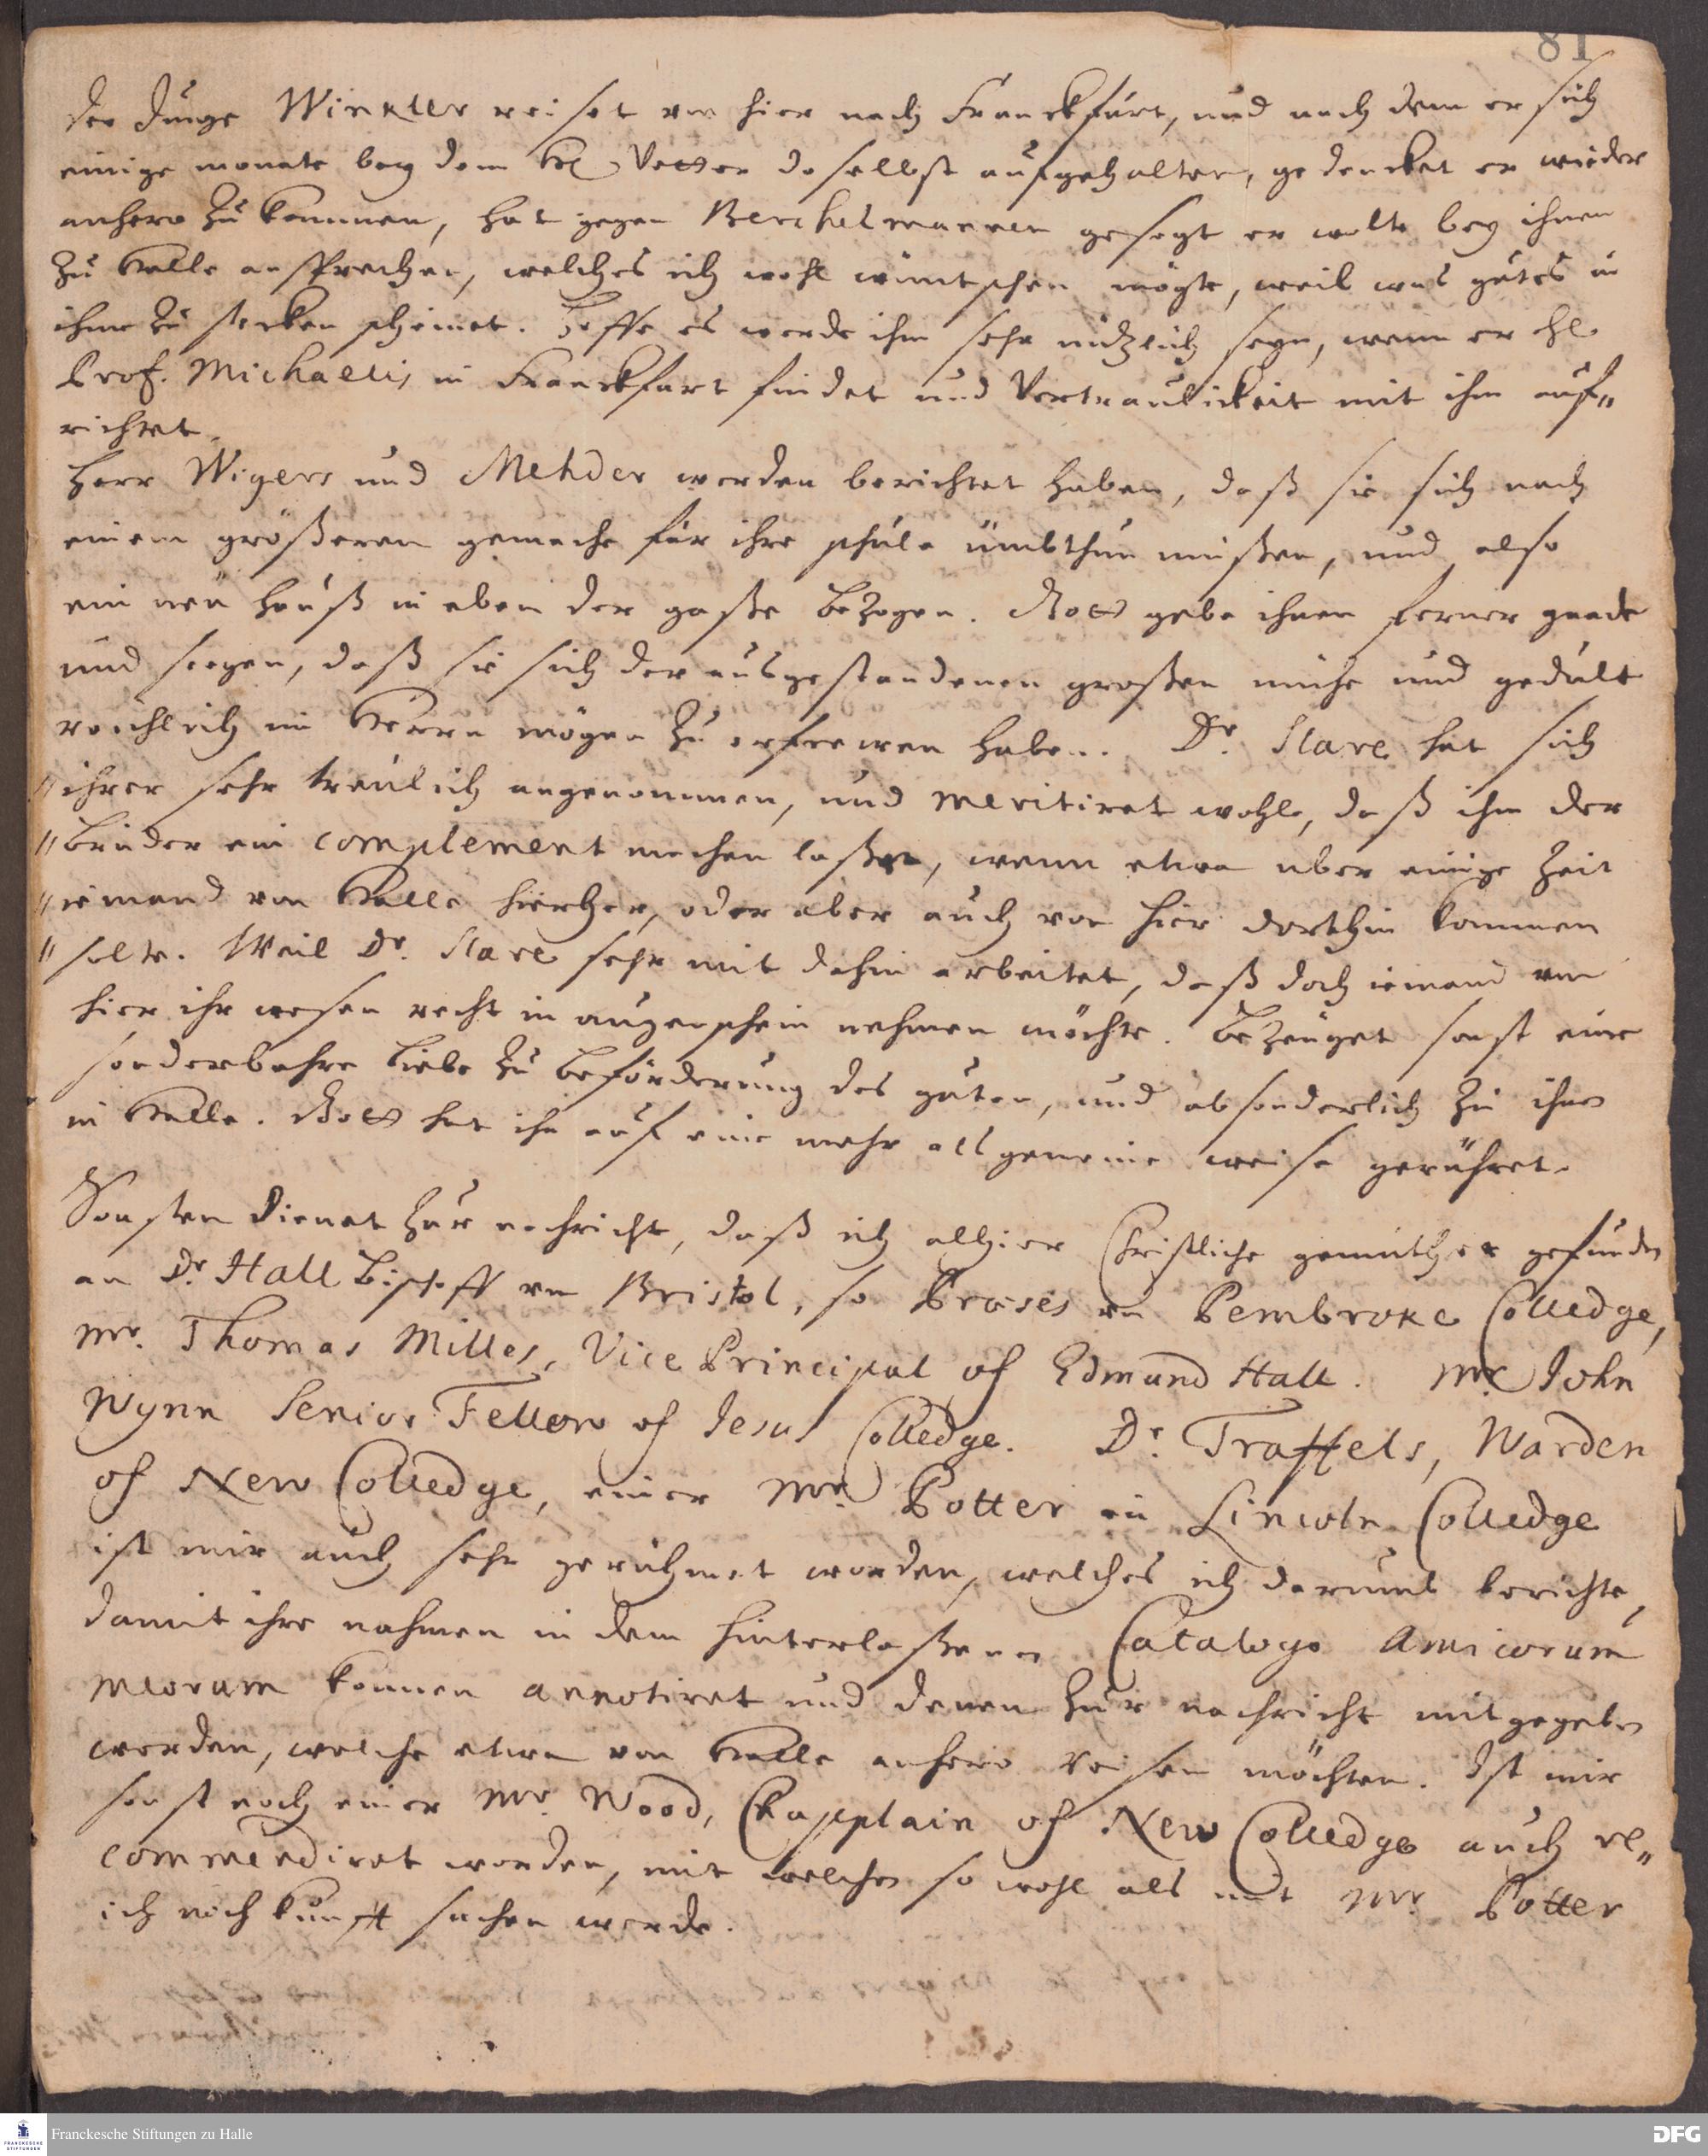 81
der Junge Winkler reiset von hier nach Franckfurt, und nach dem er sich
einige monate bey dem H Vetter daselbst aufgehalten, gedencket er wieder
anhero zu kommen, hat gegen Berchelmannen gesagt er wolte bey ihnen
zu Halle ansprechen, welches ich wohl wüntschen mögte, weil was gutes in
ihme zu stecken scheinet. Hoffe es werde ihm sehr nützlich seyn, wenn er H.
Prof. Michaelis in Franckfurt findet und Vertraulickeit mit ihm auf„
richtet.
Herr Wigers und Mehder werden berichtet haben, daß sie sich nach
einem größeren gemache für ihre schule ümbthun müßen, und also
ein neu hauß in eben der gaße bezogen. Gott gebe ihnen ferner gnade
und seegen, daß sie sich der ausgestandenen großen mühe und gedult
reichlich im Herrn mögen zu erfrewen haben. Dr. Slare hat sich
„ihrer sehr treulich angenommen, und meritiret wohl, daß ihm der
„bruder ein complement machen laße, wenn etwa uber einige Zeit
„iemand von Halle hierher, oder aber auch von hier dorthin kommen
„solte. Weil Dr. Slare sehr mit dahin arbeitet, daß doch iemand von
hier ihr wesen recht in augenschein nehmen möchte. bezeuget sonst eine
sonderbahre liebe zu beförderung des guten, und absonderlich zu ihnen
in Halle. Gott hat ihn auf eine mehr als gemeine weise gerühret.
Sonsten dienet zur nachricht, daß ich allhier Christliche gemüther gefunden
an Dr. Hall Bischoff von Bristol, so Præses von Pembroke Colledge,
Mr. Thomas Milles, Vice Principal of Edmund Hall. Mr. John
Wynn Senior Fellow of Jesus Colledge. Dr. Traffels, Warden
of New Colledge, einer Mr. Potter in Lincoln Colledge
ist mir auch sehr gerühmet worden, welches ich darumb berichte,
damit ihre nahmen in dem hinterlaßenen Catalogo Amicorum
meorum konnen annotiret und denen zur nachricht mitgegeben
werden, welche etwa von Halle anhero reisen möchten. Ist mir
sonst noch einer Mr. Wood, Chapplain of New Colledge auch re„
commendiret worden, mit welchen so wohl als mit Mr. Potter
ich noch kunfft suchen werde.
Franckesche Stiftungen zu Halle
FRANCKESCHE
STIFTUNGEN
DFG